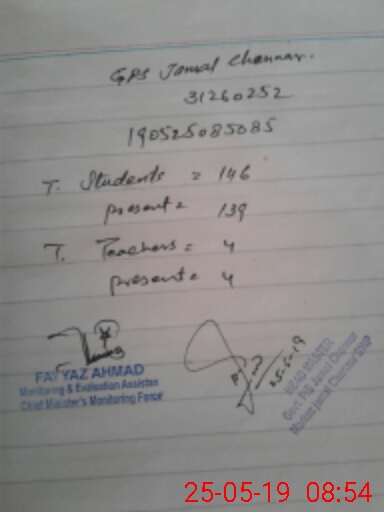 GPS Jamal Channar.
31260252
190525085085
T. Students = 146
present = 139
T. Teachers = 4
present = 4
FAYYAZ AHMAD
Monitoring & Evaluation Assistan
Chief Minister's Monitoring Force
25-5-19
HEAD MASTER
Govt. P/S Jamal Channar
Jamal Channar
25-05-19 08:54